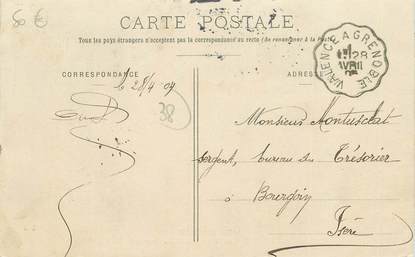 6 €
CARTE POSTALE
Tous les pays étrangers n'acceptent pas la correspondance au recto (Se renseigner à la Poste).
VALENCE A GRENOBLE
28
AVRIL
04
CORRESPONDANCE
ADRESSE
28/4 04
38
Monsieur Montusclat
sergent, bureau du Trésorier
à Bourgoin
Isère